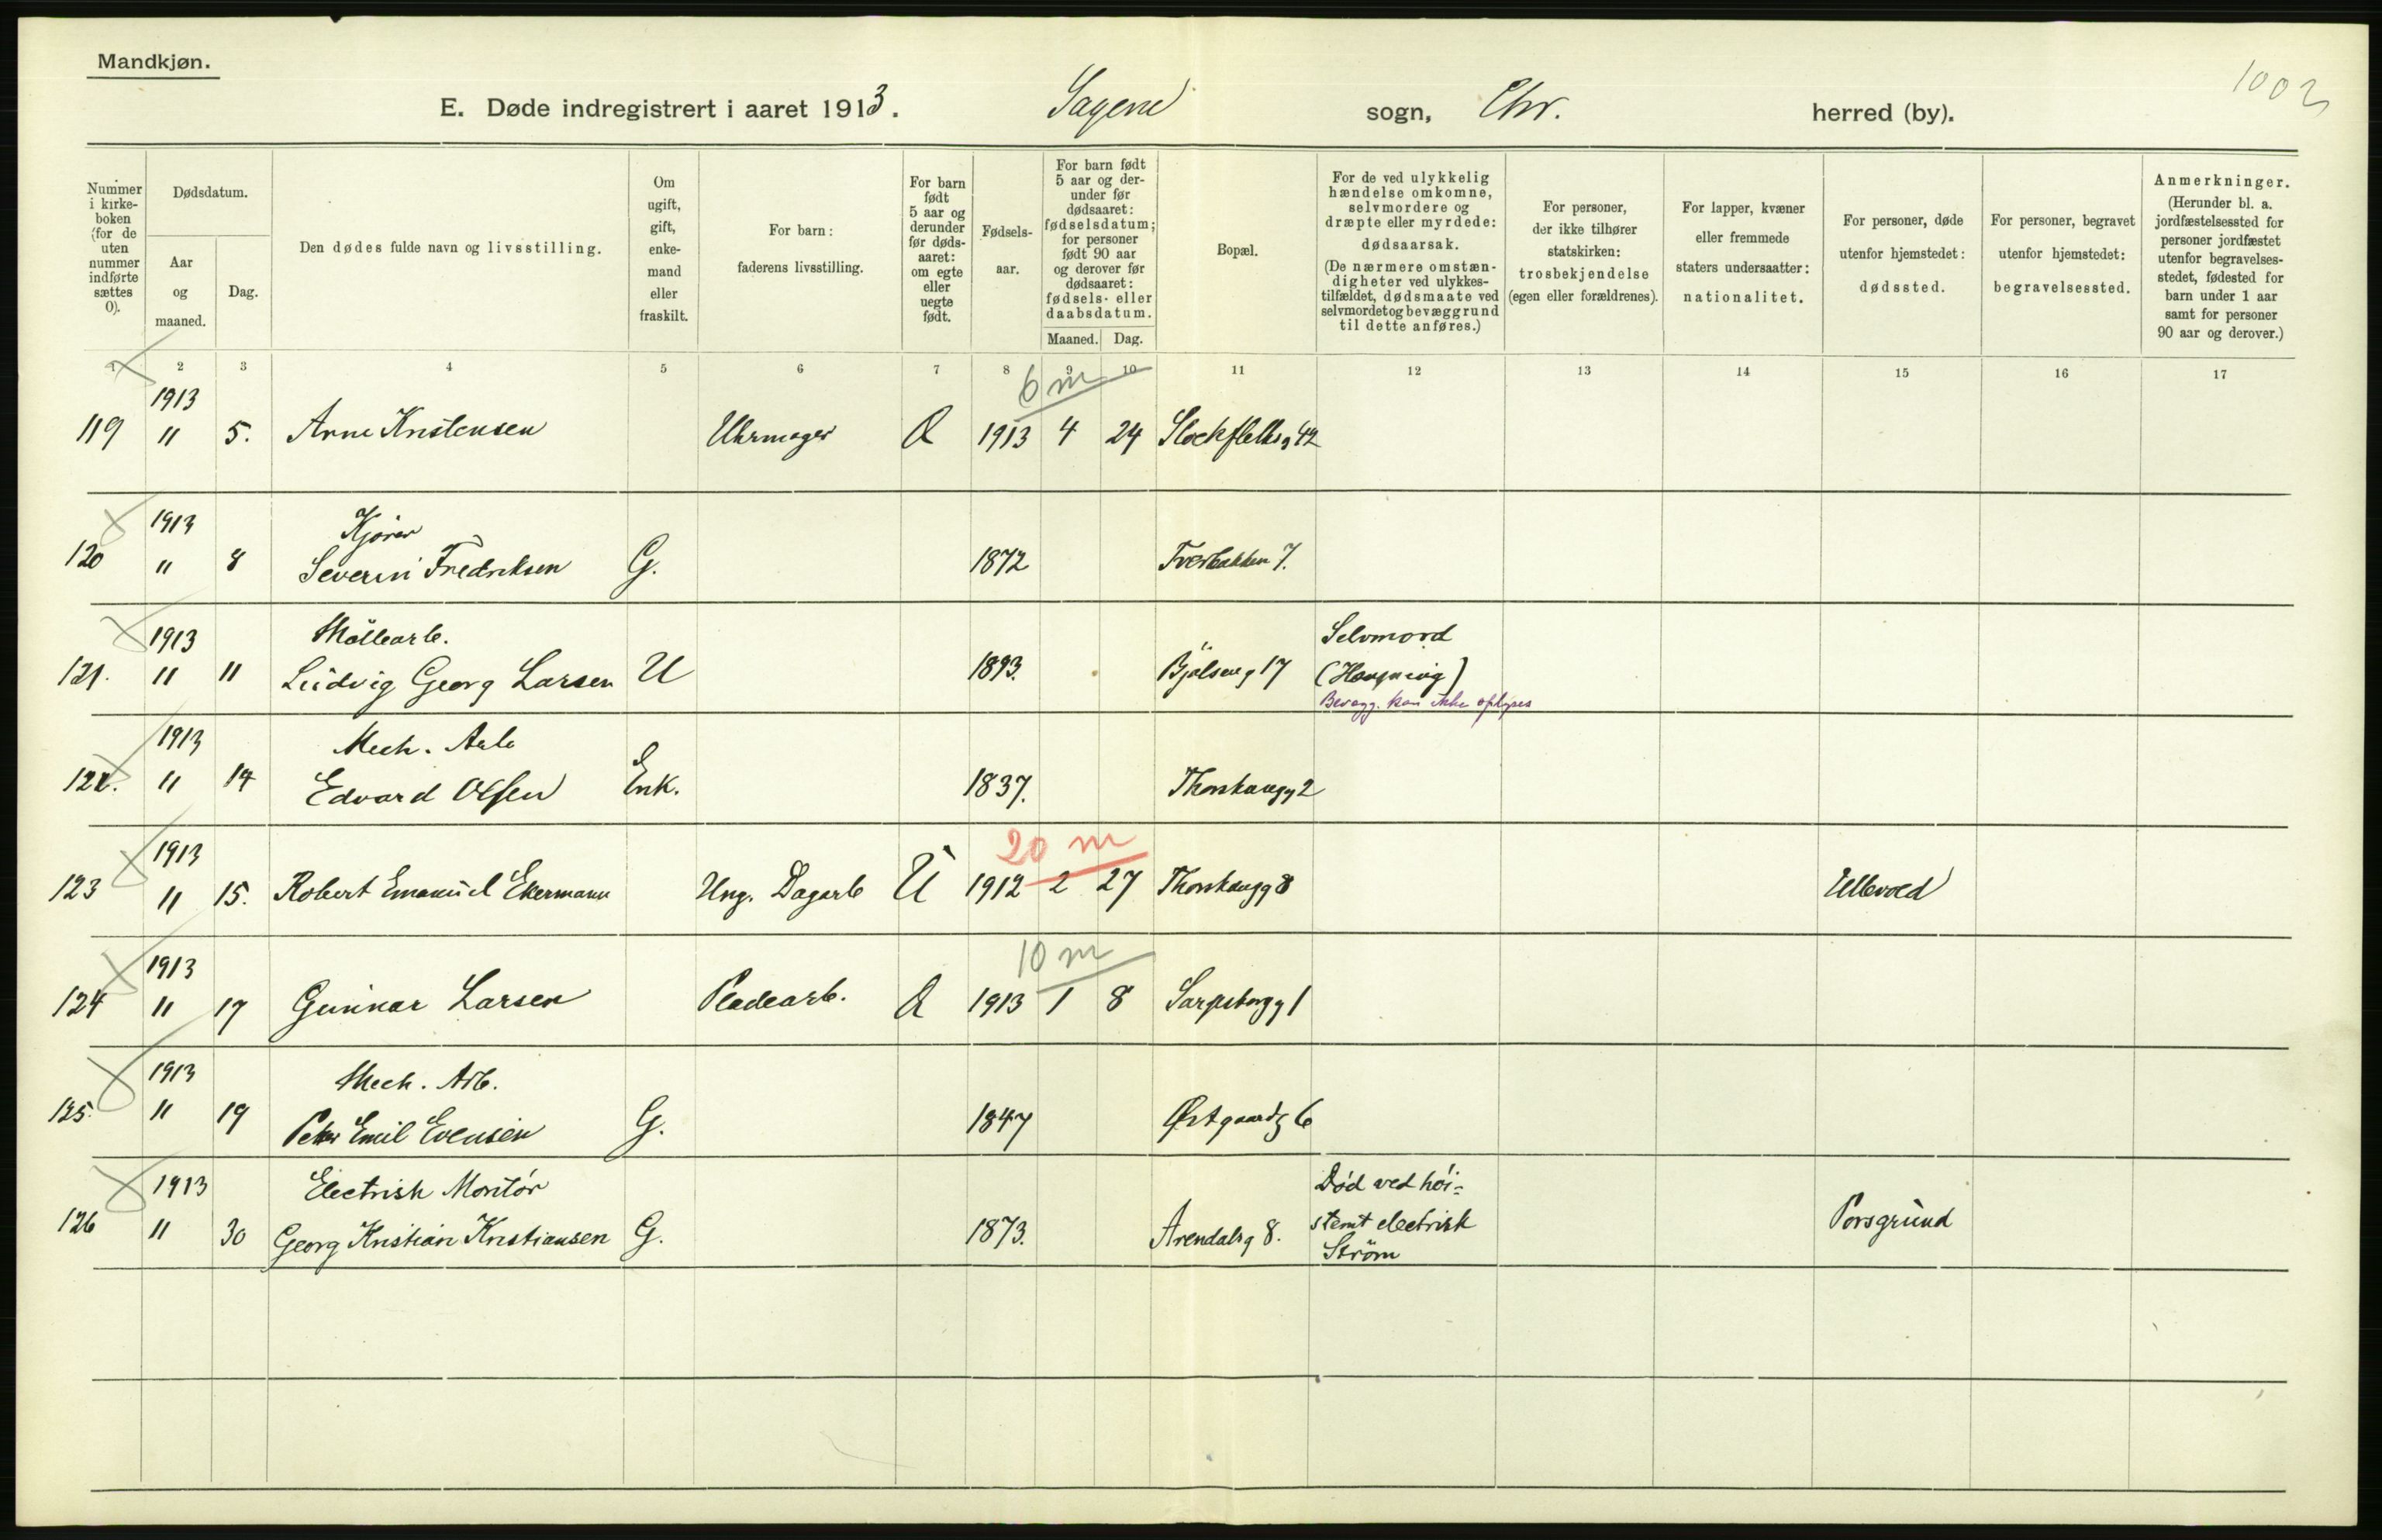 Mandkjøn.
1002
E. Døde indregistrert i aaret 1913. Sagene sogn, Chr. herred (by).
Nummer i kirke-boken (for de uten nummer indførte sættes 0).
Dødsdatum.
Aar og maaned.
Dag.
Den dødes fulde navn og livsstilling.
Om ugift, gift, enke-mand eller fraskilt.
For barn: faderens livsstilling.
For barn født 5 aar og derunder før døds-aaret: om egte eller uegte født.
Fødsels-aar.
For barn født 5 aar og der-under før dødsaaret: fødselsdatum; for personer født 90 aar og derover før dødsaaret: fødsels- eller daabsdatum.
Maaned. Dag.
Bopæl.
For de ved ulykkelig hændelse omkomne, selvmordere og dræpte eller myrdede: dødsaarsak. (De nærmere omstæn-digheter ved ulykkes-tilfældet, dødsmaate ved selvmordet og bevæggrund til dette anføres.)
For personer, der ikke tilhører statskirken: trosbekjendelse (egen eller forældrenes).
For lapper, kvæner eller fremmede staters undersaatter: nationalitet.
For personer, døde utenfor hjemstedet: dødssted.
For personer, begravet utenfor hjemstedet: begravelsessted.
Anmerkninger. (Herunder bl. a. jordfæstelsessted for personer jordfæstet utenfor begravelses-stedet, fødested for barn under 1 aar samt for personer 90 aar og derover.)
1 2 3 4 5 6 7 8 9 10 11 12 13 14 15 16 17
1913 6 m
119 11 5. Arne Kristensen Uhrmager 1913 4 24 Stockflethsg 42
1913 Kjører
120 11 8 Severin Fredriksen G. 1872 Tverbakken 7.
1913 Möllearb. Selvmord
121. 11 11 Ludvig Georg Larsen U 1893. Bjølseng 17 (Hængning)
Bevægg. kan ikke oplyses
1913 Mech. Arb
122. 11 14 Edvard Olsen Enk. 1837. Thorshaugg 2
1913 20 m
123 11 15. Robert Emanuel Ekermann Ung. Dagarb U 1912 2 27 Thorshaugg 8 Ullevold
1913 10 m
124 11 17 Gunnar Larsen Pladearb. 1913 1 8 Sarpsborgg 1
1913 Mech. Arb.
125. 11 19 Peter Emil Evensen G. 1847 Østgaardg 6
1913 Electrisk Montør Død ved høi-
126 11 30 Georg Kristian Kristiansen G. 1873. Arendalsg 8. stemt electrisk Porsgrund
Strøm